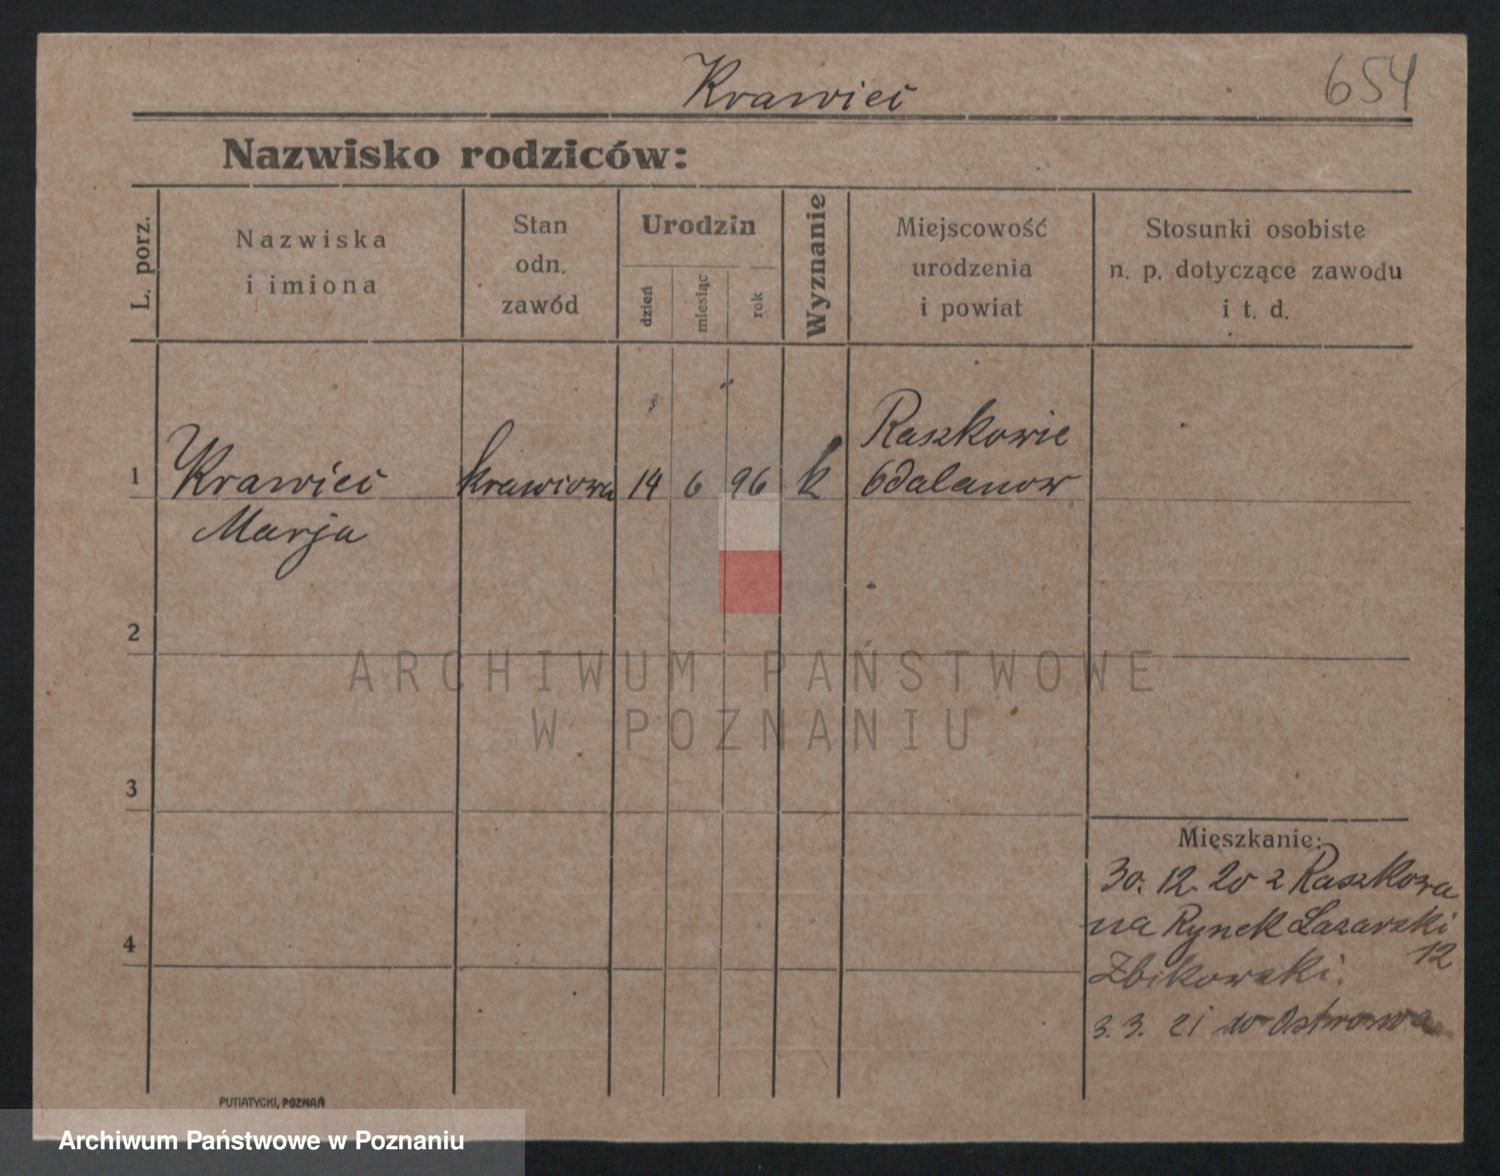 Krawiec
654
Nazwisko rodziców:
L. porz.
Nazwiska
i imiona
Stan
odn.
zawód
Urodzin
dzień
miesiąc
rok
Wyznanie
Miejscowość
urodzenia
i powiat
Stosunki osobiste
n. p. dotyczące zawodu
i t. d.
1
Krawiec
Marja
krawcowa
14
6
96
k
Raszkowie
Odalanow
2
ARCHIWUM PAŃSTWOWE
W POZNANIU
3
Mieszkanie:
30. 12. 20 z Raszkowa
na Rynek Łazarski
12
Zbikowski.
4
3. 3. 21 do Ostrowa
PUTIATYCKI, POZNAŃ
Archiwum Państwowe w Poznaniu